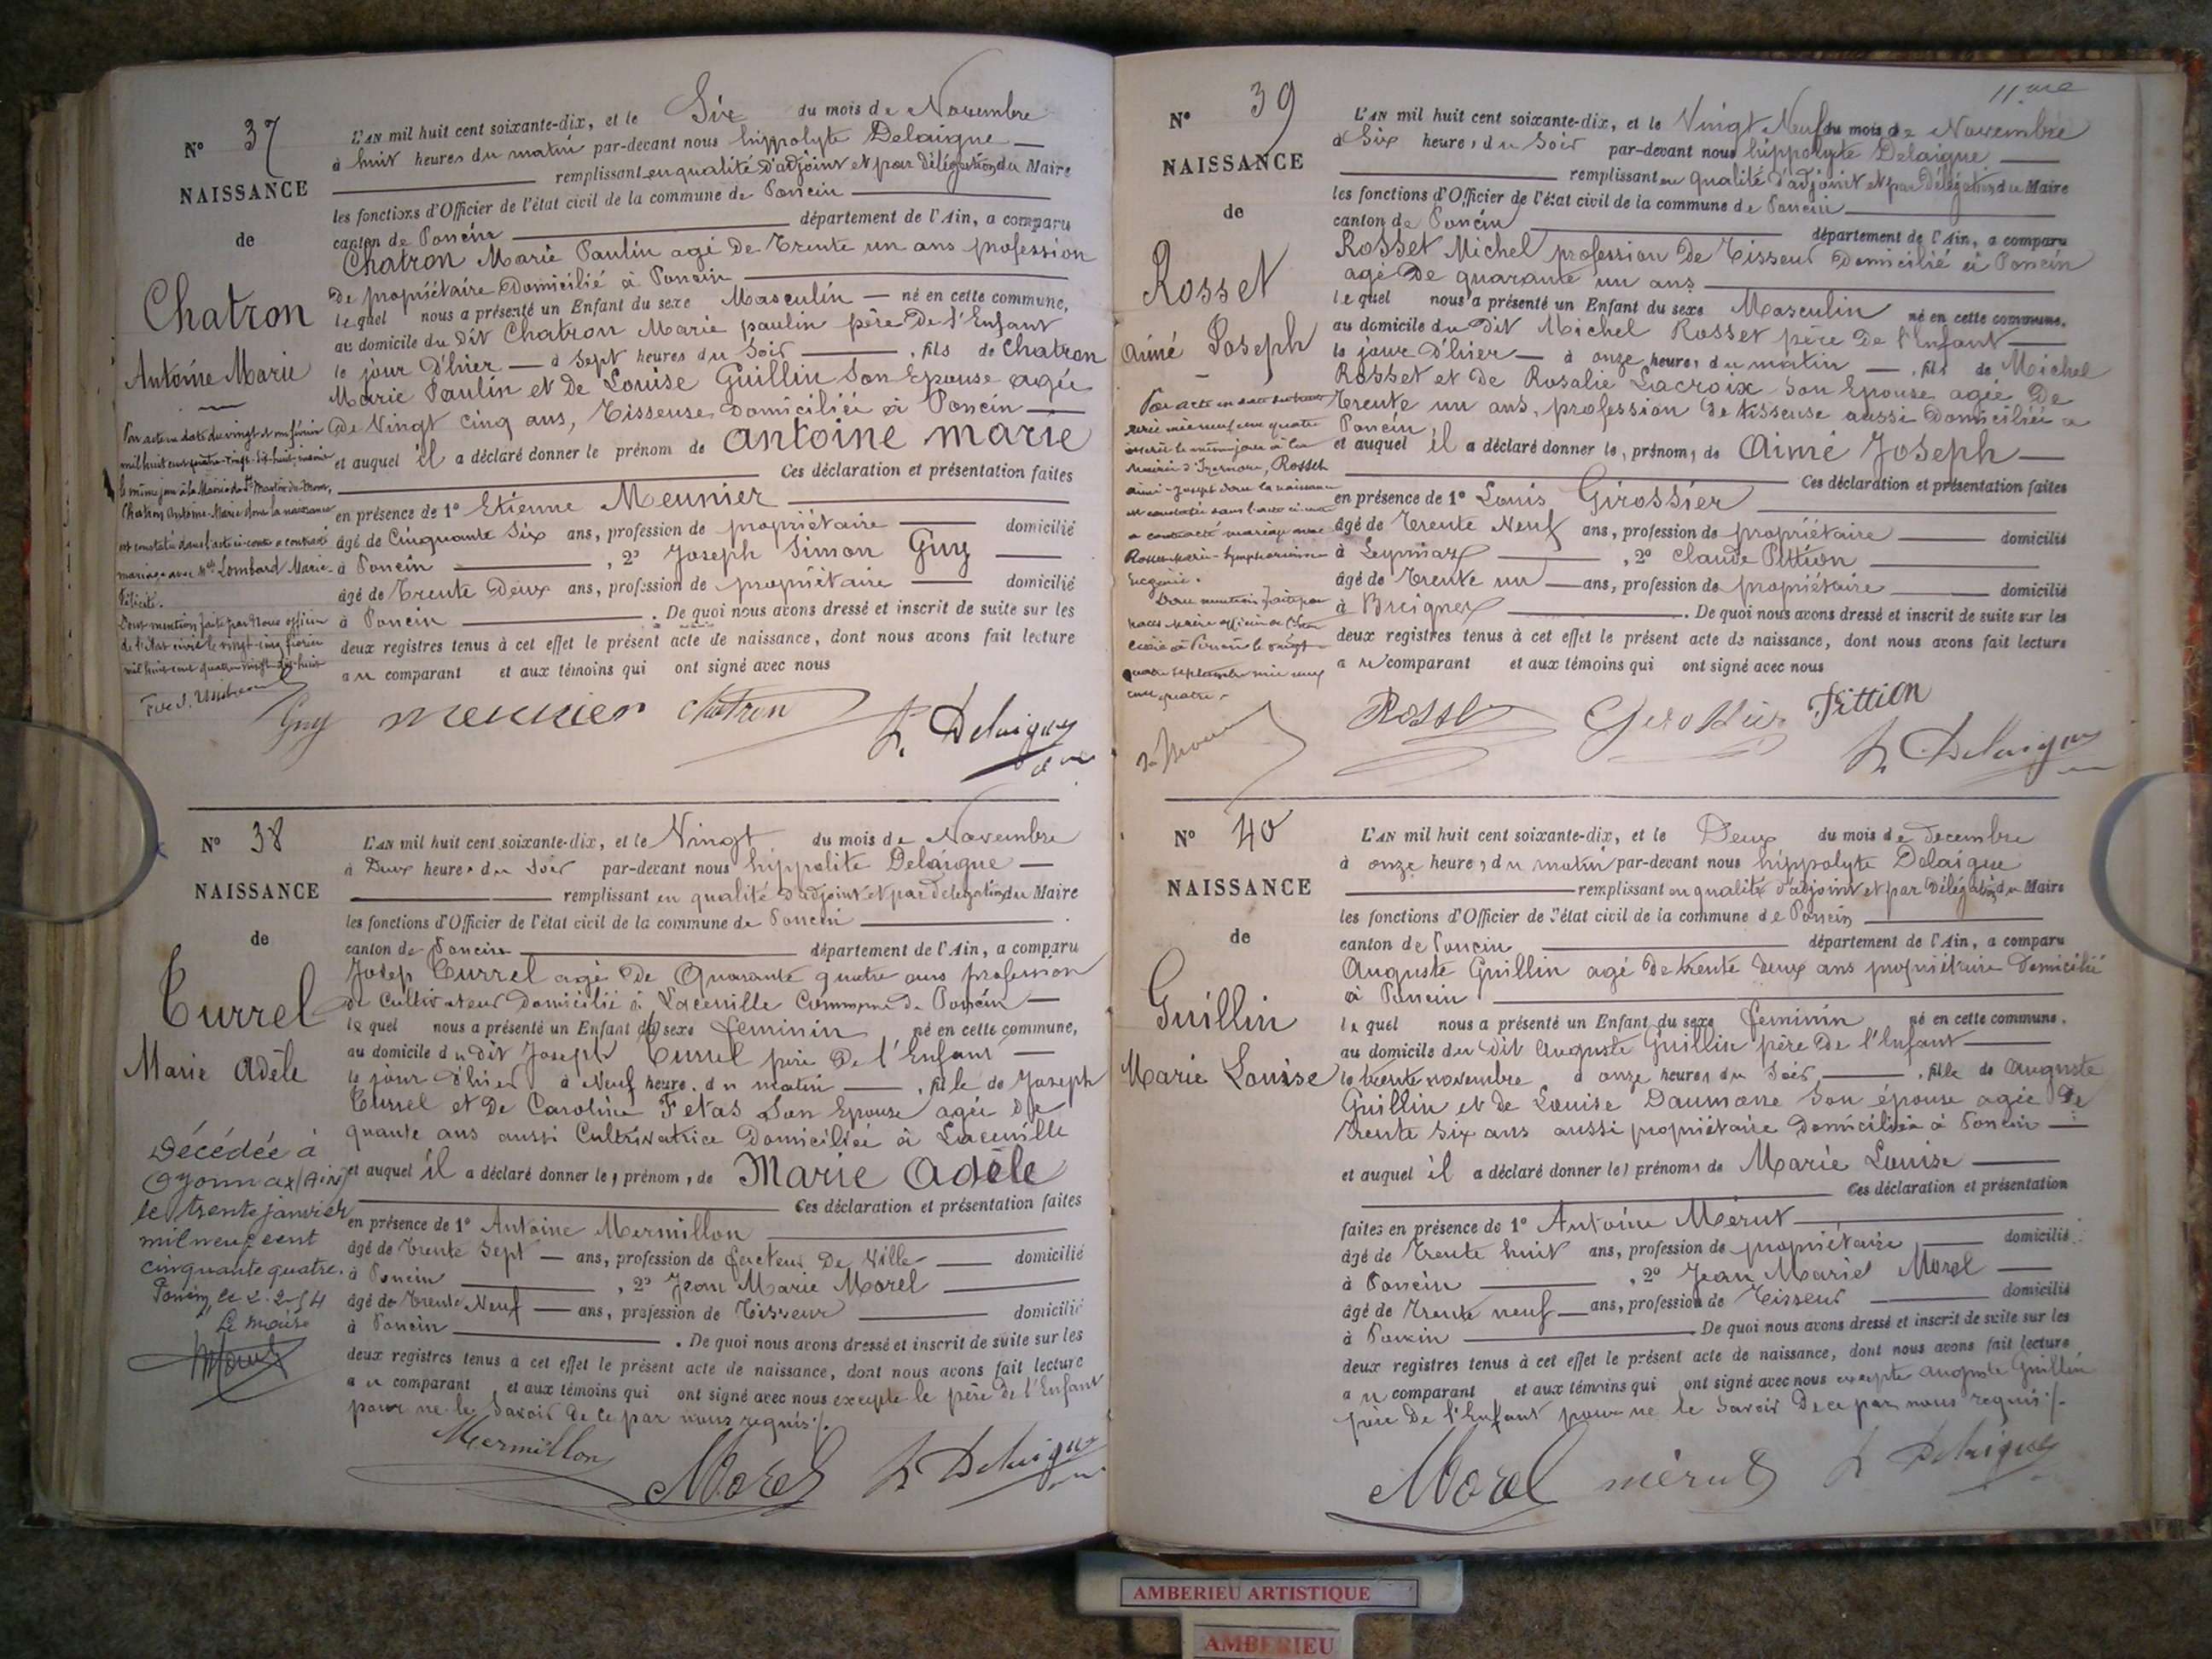 N° 37
NAISSANCE
de
Chatron
Antoine Marie
Par acte en date du vingt et un février
mil huit cent quatre-vingt-dix-huit, inscrit
le même jour à la Mairie de St Martin du Mont,
Chatron Antoine-Marie dont la naissance
est constatée dans l'acte ci-contre a contracté
mariage avec Lombard Marie-
Félicité.
Dont mention faite par Nous officier
de l'état civil le vingt-cinq février
mil huit cent quatre-vingt-dix-huit
L'AN mil huit cent soixante-dix, et le Six du mois de Novembre
à huit heures du matin par-devant nous hippolyte Delaigue
remplissant en qualité d'adjoint et par délégation du Maire
les fonctions d'Officier de l'état civil de la commune de Poncin
canton de Poncin département de l'Ain, a comparu
Chatron Marie Paulin agé De Trente un ans profession
De propriétaire Domicilié à Poncin
lequel nous a présenté un Enfant du sexe Masculin né en cette commune,
au domicile du dit Chatron Marie paulin père De l'Enfant
le jour D'hier à Sept heures du Soir , fils de Chatron
Marie Paulin et de Louise Guillin Son Epouse agée
De Vingt cinq ans, Tisseuse Domiciliée à Poncin
et auquel il a déclaré donner le prénom de antoine marie
Ces déclaration et présentation faites
en présence de 1° Etienne Meunier
âgé de Cinquante Six ans, profession de propriétaire domicilié
à Poncin , 2° Joseph Simon Guy
âgé de Trente Deux ans, profession de propriétaire domicilié
à Poncin . De quoi nous avons dressé et inscrit de suite sur les
deux registres tenus à cet effet le présent acte de naissance, dont nous avons fait lecture
au comparant et aux témoins qui ont signé avec nous
Guy meunier Chatron h. Delaigue
N° 38
NAISSANCE
de
Turrel
Marie Adèle
Décédée à
Oyonnax (Ain)
le trente janvier
mil neuf cent
cinquante quatre.
Poncin, le 2.2.54
Le maire
L'AN mil huit cent soixante-dix, et le Vingt du mois de Novembre
à Deux heures du Soir par-devant nous hippolite Delaigue
remplissant en qualité d'adjoint et par délégation du Maire
les fonctions d'Officier de l'état civil de la commune de Poncin
canton de Poncin département de l'Ain, a comparu
Josep Turrel agé De Quarante quatre ans profession
de Cultivateur Domicilié à Lacueille Commune de Poncin
lequel nous a présenté un Enfant du sexe feminin né en cette commune,
au domicile du dit Joseph Turrel père De l'Enfant
le jour d'hier à Neuf heures du matin , fille de Joseph
Turrel et De Caroline Fetas Son Epouse agée De
quante ans aussi Cultivatrice Domiciliée à Lacueille
et auquel il a déclaré donner les prénoms de Marie Adèle
Ces déclaration et présentation faites
en présence de 1° Antoine Mermillon
âgé de Trente Sept ans, profession de facteur De Ville domicilié
à Poncin , 2° Jean Marie Morel
âgé de Trente Neuf ans, profession de Tisseur domicilié
à Poncin . De quoi nous avons dressé et inscrit de suite sur les
deux registres tenus à cet effet le présent acte de naissance, dont nous avons fait lecture
au comparant et aux témoins qui ont signé avec nous excepte le père De l'Enfant
pour ne le Savoir De ce par nous requis ./.
Mermillon Morel h Delaigue
11.me
N° 39
NAISSANCE
de
Rosset
Aimé Joseph
mil neuf cent quatre
inscrit le même jour à la
Mairie d'Izernore, Rosset
Aimé-Joseph dont la naissance
est constatée dans l'acte ci-contre
a contracté mariage avec
Marie-Symphorienne
Eugénie.
Dont mention faite par
nous, Maire officier de l'état
civil à Poncin le vingt-
quatre septembre mil neuf
cent quatre.
L'AN mil huit cent soixante-dix, et le Vingt Neuf du mois de Novembre
à Six heures du Soir par-devant nous hippolyte Delaigue
remplissant en qualité d'adjoint et par Délégation du Maire
les fonctions d'Officier de l'état civil de la commune de Poncin
canton de Poncin département de l'Ain, a comparu
Rosset Michel profession De Tisseur Domicilié à Poncin
agé De quarante un ans
lequel nous a présenté un Enfant du sexe Masculin né en cette commune,
au domicile du Dit Michel Rosset père De l'Enfant
le jour D'hier à onze heures du matin , fils de Michel
Rosset et de Rosalie Lacroix Son Epouse agée De
Trente un ans, profession de tisseuse aussi Domiciliée a
Poncin
et auquel il a déclaré donner les prénoms de Aimé Joseph
Ces déclaration et présentation faites
en présence de 1° Louis Girossier
âgé de Trente Neuf ans, profession de propriétaire domicilié
à Leymiaz , 2° Claude Fittion
âgé de Trente un ans, profession de propriétaire domicilié
à Breignes . De quoi nous avons dressé et inscrit de suite sur les
deux registres tenus à cet effet le présent acte de naissance, dont nous avons fait lecture
au comparant et aux témoins qui ont signé avec nous
Rosset Girossier Fittion h Delaigue
N° 40
NAISSANCE
de
Guillin
Marie Louise
L'AN mil huit cent soixante-dix, et le Deux du mois de décembre
à onze heures du matin par-devant nous hippolyte Delaigue
remplissant en qualité d'adjoint et par Délégation du Maire
les fonctions d'Officier de l'état civil de la commune de Poncin
canton de Poncin département de l'Ain, a comparu
Auguste Guillin agé De trente Deux ans propriétaire Domicilié
à Poncin
lequel nous a présenté un Enfant du sexe feminin né en cette commune,
au domicile du Dit Auguste Guillin père De l'Enfant
le trente novembre à onze heures du Soir , fille de Auguste
Guillin et de Louise Daumone Son épouse agée De
Trente Six ans aussi propriétaire Domiciliée à Poncin
et auquel il a déclaré donner les prénoms de Marie Louise
Ces déclaration et présentation
faites en présence de 1° Antoine Mérut
âgé de Trente huit ans, profession de propriétaire domicilié
à Poncin , 2° Jean Marie Morel
âgé de Trente neuf ans, profession de Tisseur domicilié
à Poncin De quoi nous avons dressé et inscrit de suite sur les
deux registres tenus à cet effet le présent acte de naissance, dont nous avons fait lecture
au comparant et aux témoins qui ont signé avec nous excepte Auguste Guillin
père De l'Enfant pour ne le Savoir De ce par nous requis ./.
Morel mérut h Delaigue
AMBERIEU ARTISTIQUE
AMBERIEU